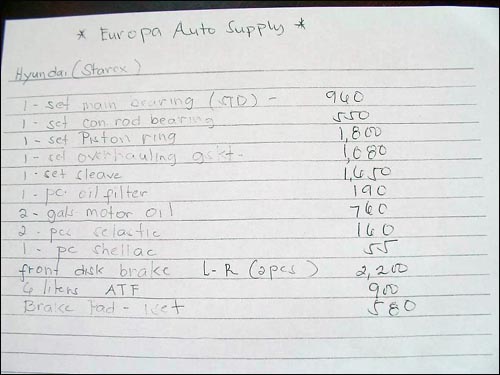 * Europa Auto Supply *
Hyundai (Starex)
1 - set main braring (STD) - 960
1 - set con rod bearing 550
1 - set Piston ring 1,800
1 - set overhauling gskt. 1,080
1 - set sleave 1,450
1 - pc. oil filter 190
2 - gals motor oil 760
2 - pcs selastic 160
1 - pc shellac 55
front disk brake L-R (2pcs) 2,200
4 liters ATF 900
Brake Pad - 1set 580